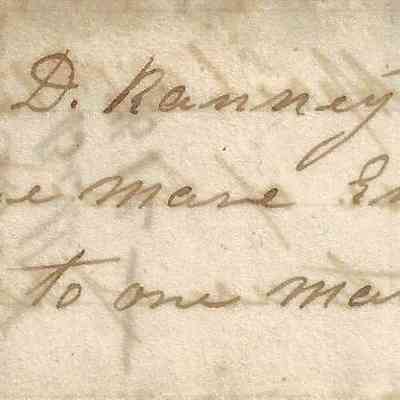 D. Ranney
mare
to one